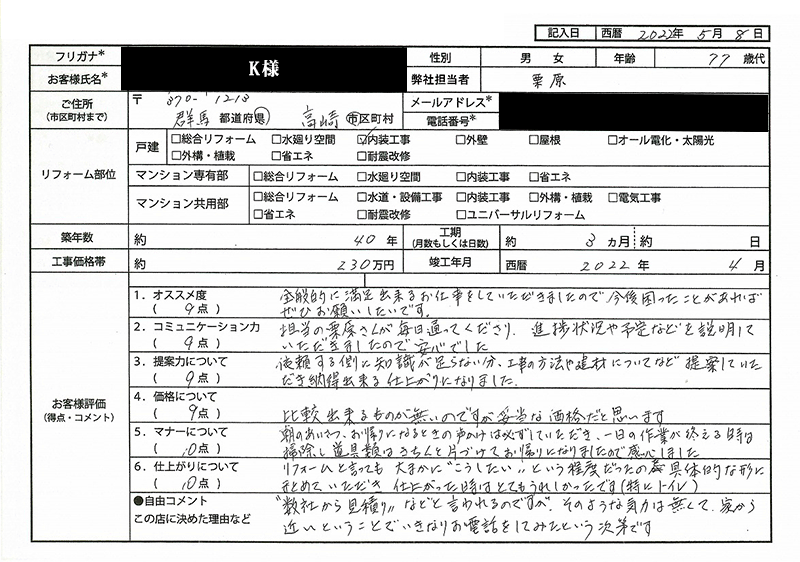 記入日 西暦 2022年 5月 8日
フリガナ* K様 性別 男 女 年齢 77 歳代
お客様氏名* 弊社担当者 栗原
ご住所 〒 370-1213 メールアドレス*
(市区町村まで) 群馬 都道府県 高崎 市区町村 電話番号*
リフォーム部位
戸建 □総合リフォーム □水廻り空間 ☑内装工事 □外壁 □屋根 □オール電化・太陽光
□外構・植栽 □省エネ □耐震改修
マンション専有部 □総合リフォーム □水廻り空間 □内装工事 □省エネ
マンション共用部 □総合リフォーム □水道・設備工事 □内装工事 □外構・植栽 □電気工事
□省エネ □耐震改修 □ユニバーサルリフォーム
築年数 約 40 年 工期 (月数もしくは日数) 約 3 カ月 約 日
工事価格帯 約 230 万円 竣工年月 西暦 2022 年 4 月
お客様評価
(得点・コメント)
1. オススメ度
( 9点 )
全般的に満足出来るお仕事をしていただきましたので今後困ったことがあれば
ぜひお願いしたいです。
2. コミュニケーション力
( 9点 )
担当の栗原さんが毎日通ってくださり、進捗状況や予定などを説明して
いただきましたので安心でした
3. 提案力について
( 9点 )
依頼する側に知識が足らない分、工事の方法や建材についてなど提案していた
だき納得出来る仕上がりになりました.
4. 価格について
( 9点 )
比較出来るものが無いのですが妥当な価格だと思います
5. マナーについて
( 10点 )
朝のあいさつ、お帰りになるときの声かけは必ずしていただき、一日の作業が終える時は
掃除し道具類はきちんと片づけてお帰りになりましたので感心しました
6. 仕上がりについて
( 10点 )
リフォームと言っても 大まかに"こうしたい"という程度だったの 具体的な形に
まとめていただき 仕上がった時はとてもうれしかったです(特にトイレ)
●自由コメント
この店に決めた理由など
"数社から見積り"などと言われるのですが、そのような気力は無くて、家から
近いということでいきなりお電話をしてみたという次第です